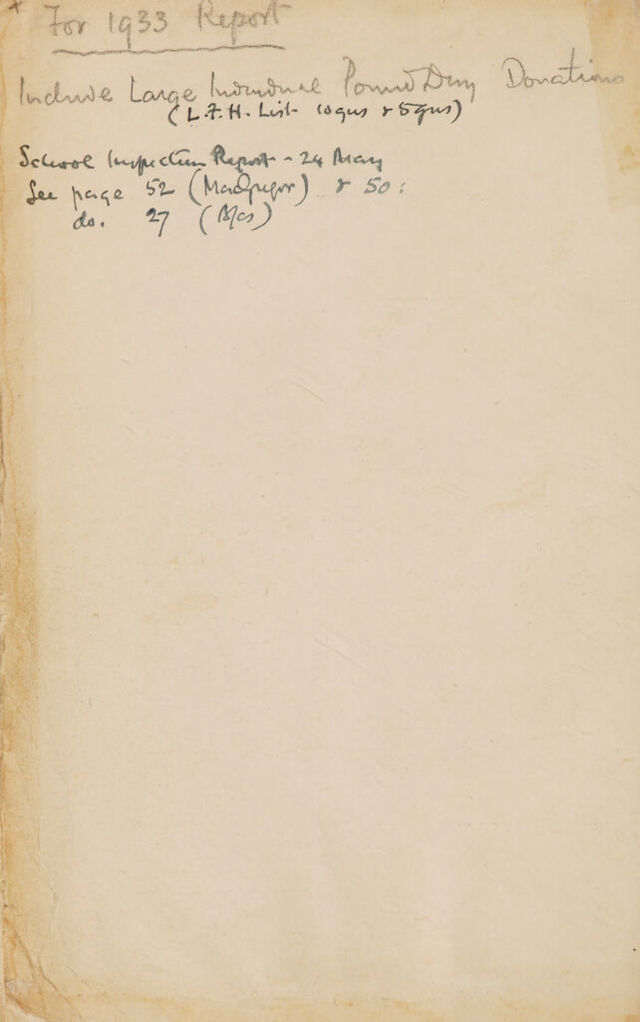 For 1933 Report
Include Large Individual Pound Day Donations
(L.F.H. List 10gns & 5gns)
School Inspection Report - 24 May
See page 52 (MacGregor) & 50:
do. 27